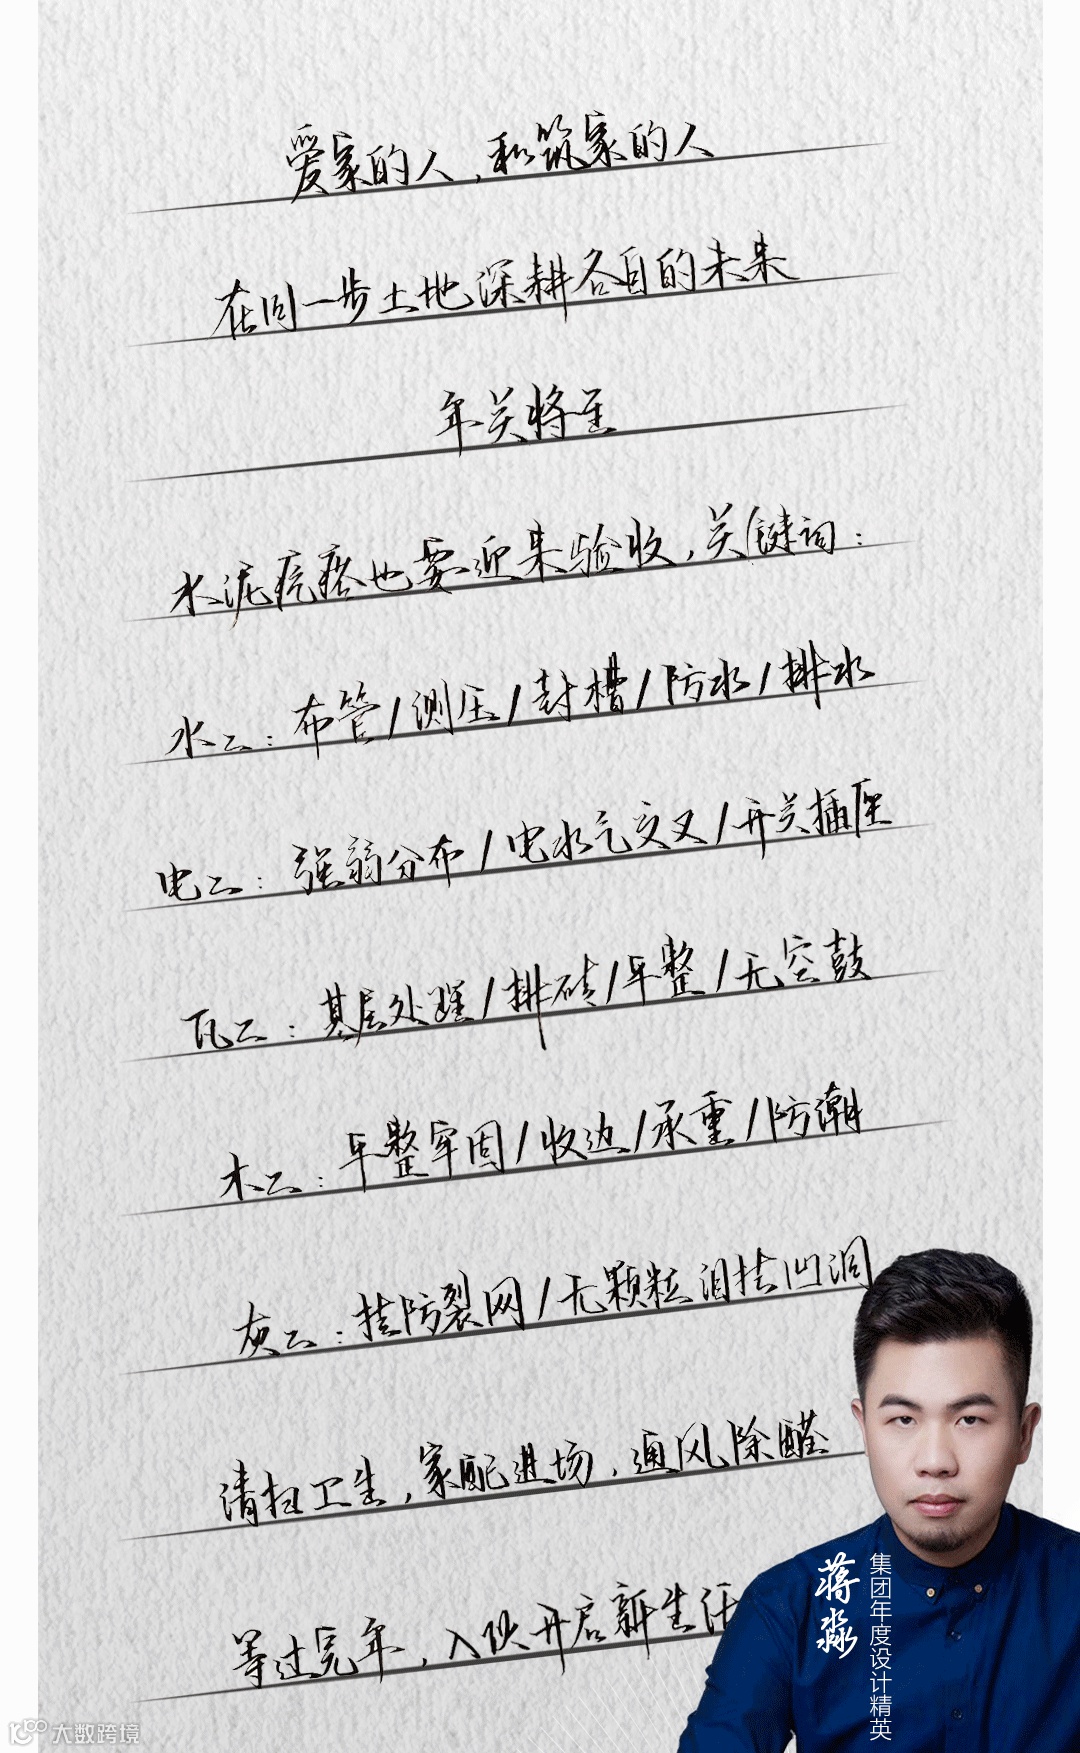 爱家的人，和筑家的人
在同一步土地深耕各自的未来
年关将至
水泥疙瘩也要迎来验收，关键词：
水工：布管/测压/封槽/防水/排水
电工：强弱分布/电水气交叉/开关插座
瓦工：基层处理/排砖/平整/无空鼓
木工：平整牢固/收边/承重/防潮
灰工：挂防裂网/无颗粒泪挂凹洞
清扫卫生，家配进场，通风除醛
等过完年，入伙开启新生活
蒋淼
集团年度设计精英
大数跨境